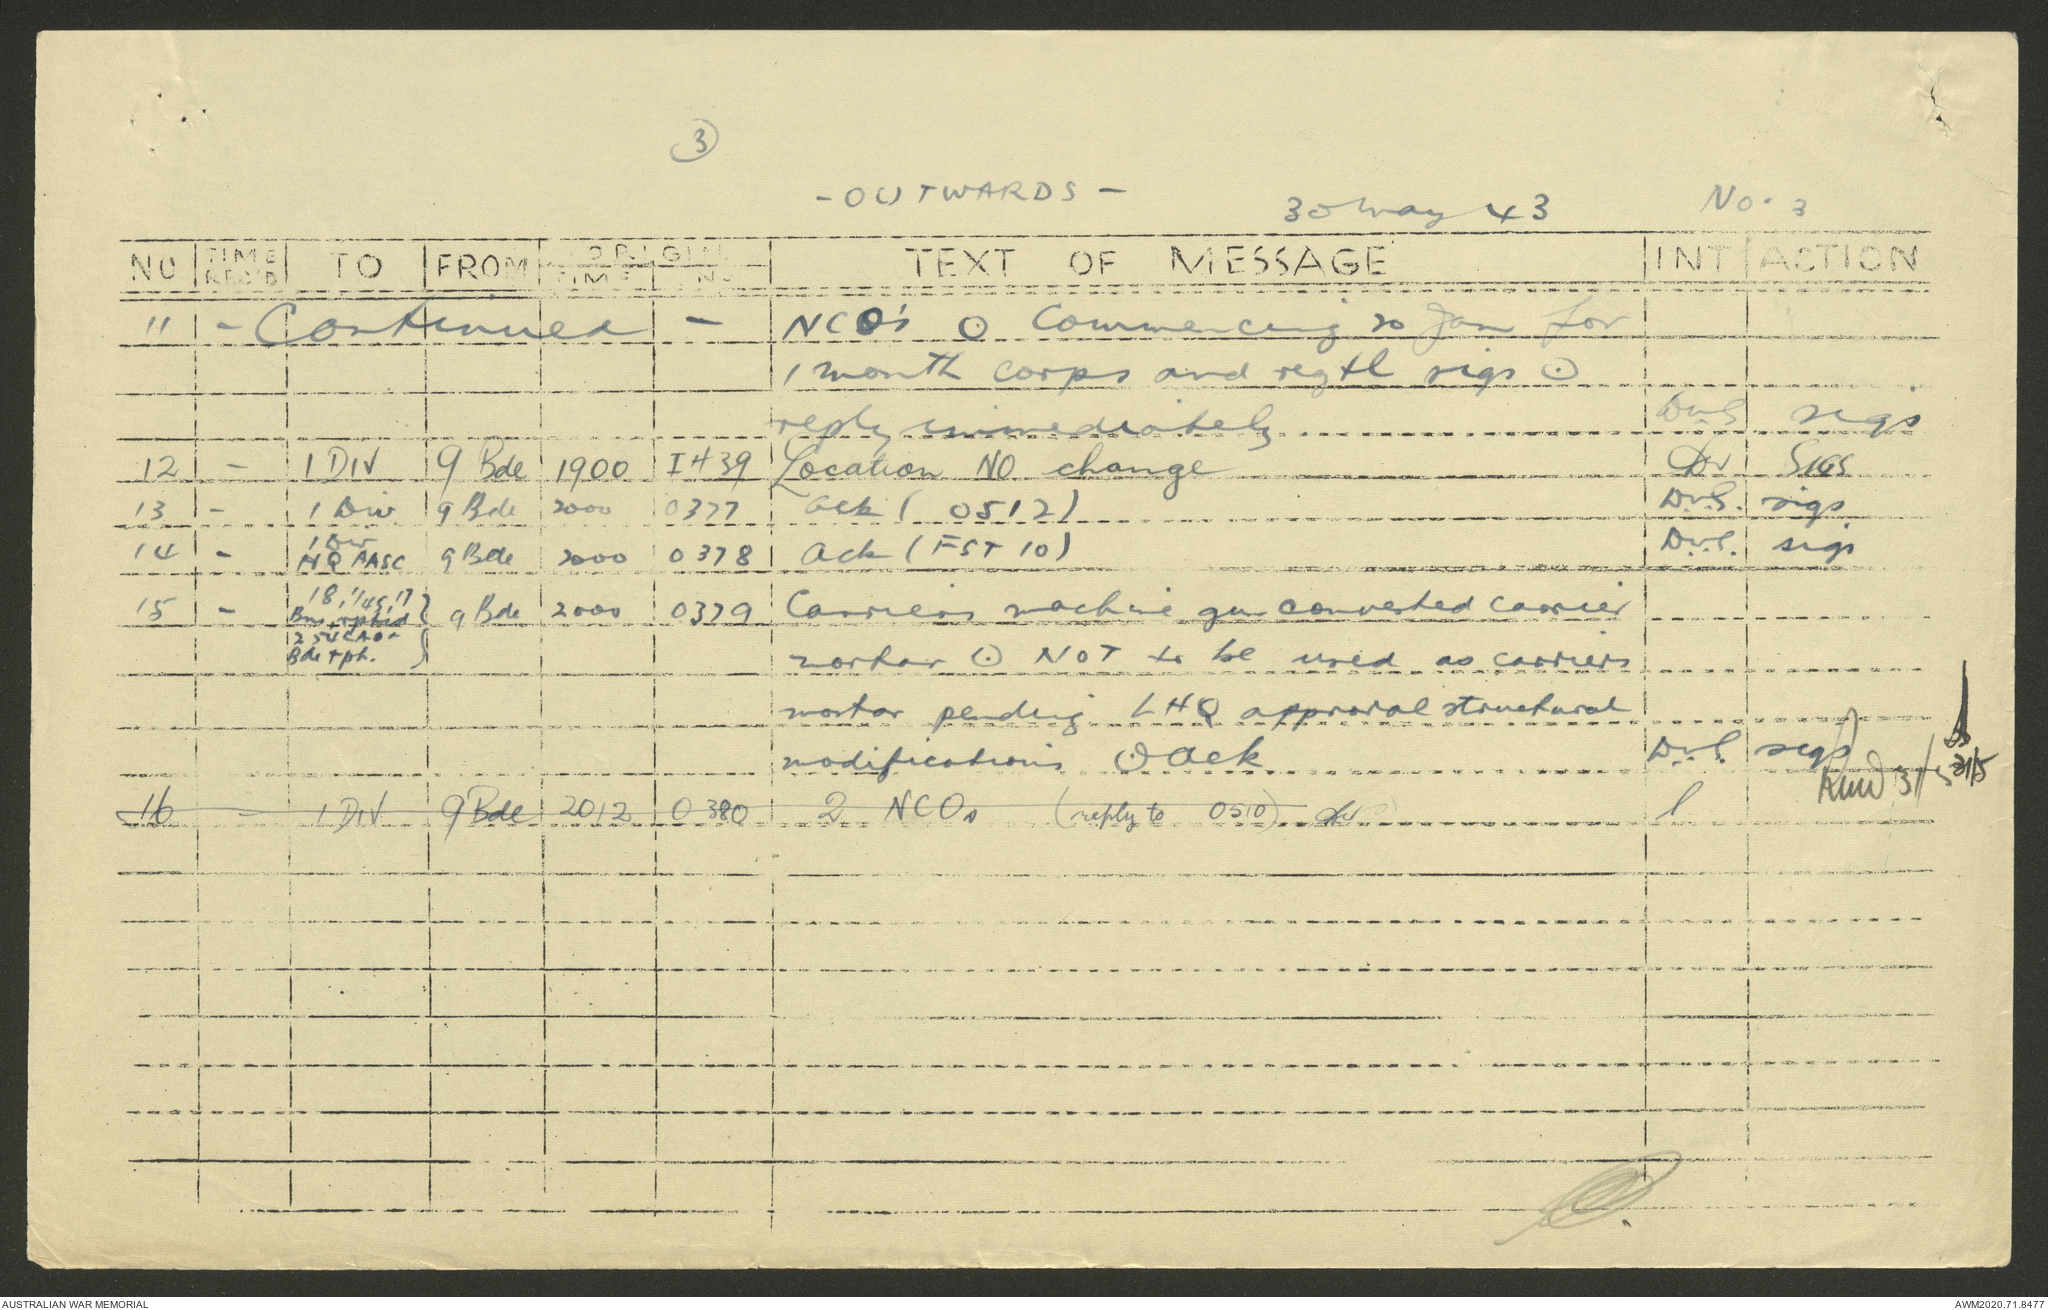 3
- OUTWARDS -
30 May 43 No. 3
NO TIME REC'D TO FROM ORIGIN TIME NO TEXT OF MESSAGE INT ACTION
11 - Continued - NCO's ⊙ Commencing 20 Jan for
1 month corps and regtl sigs ⊙
reply immediately D.v.G. sigs
12 - 1 DIV 9 Bde 1900 I439 Location NO change SIGS
13 - 1 Div 9 Bde 2000 0377 ack (0512) D.v.G. sigs
14 - 1 Div HQ AASC 9 Bde 2000 0378 Ack (FST 10) D.v.G. sigs
15 - 18, 1/45, 17 Bns 9 Bde 2000 0379 Carriers machine gun converted carrier
Bde + ph. mortar ⊙ NOT to be used as carriers
mortar pending LHQ approval structural
modifications ⊙ Ack D.v.G. sigs
31/5 31/5
16 - 1 DIV 9 Bde 2012 0380 2 NCOs (reply to 0510)
AUSTRALIAN WAR MEMORIAL AWM2020.71.8477